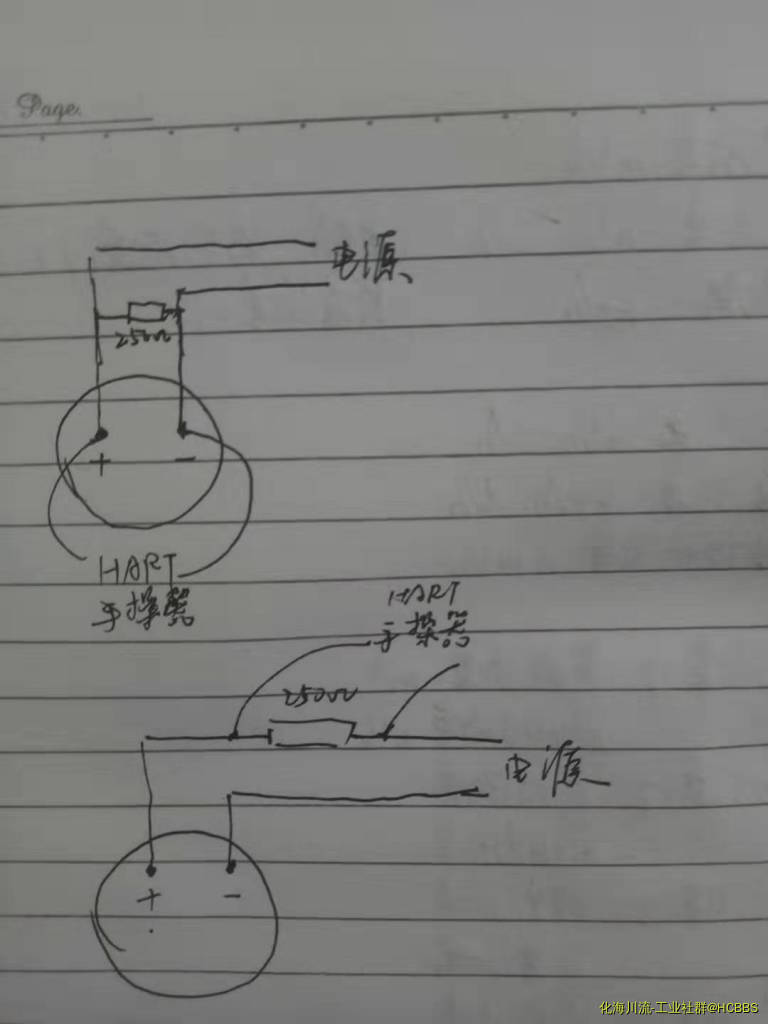 Page.
电源
250Ω
+ -
HART
手操器
HART
手操器
250Ω
电源
+ -
化海川流-工业社群@HCBBS